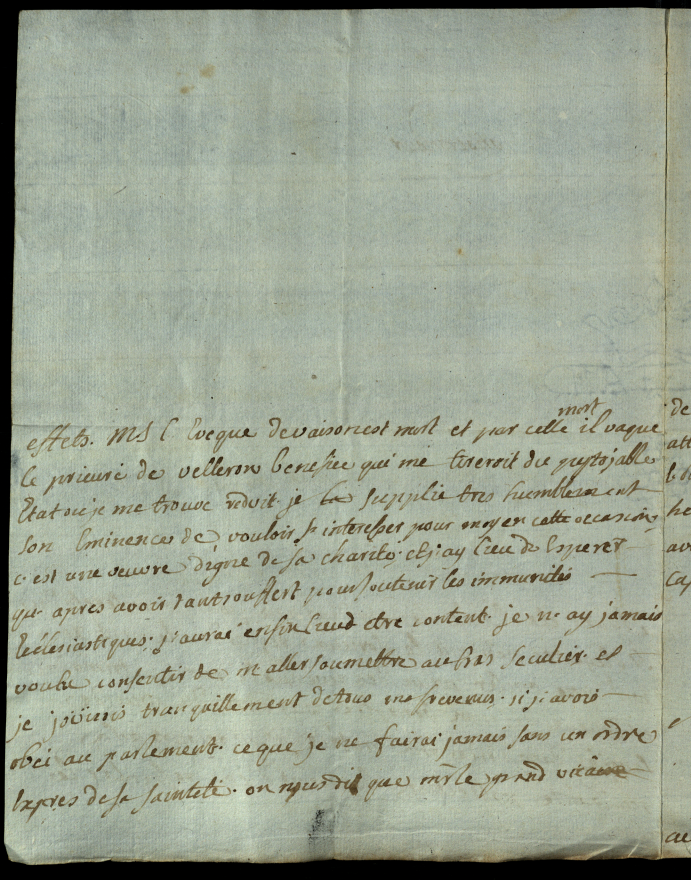 mort
effets. MSE L'Eveque de vaison est mort et par celle il vaque
Le prieuré de velleron benefice qui me tireroit du pitojable
Etat ou je me trouve reduit. je la supplie tres humblement
son Eminence de vouloir s'interesser pour moy en cette occasion
c'est une oeuvre digne de sa charité, et j'ay lieu de Esperer
qu'apres avoir tant souffert pour soutenir les immunités
Ecclesiastiques, j'aurai enfin lieu d'etre content. je n'ay jamais
voulu consentir de m'aller soumettre au bras seculier. et
je joüirois tranquillement de tous mes revenus. si j'avois
obei au parlement. ce que je ne fairai jamais sans un ordre
Expres de sa sainteté. on nous dit que mr le grand vicaire
de
att
he
av
ca